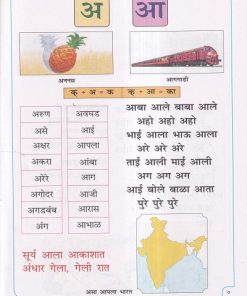 अ आ
अननस
आगगाडी
क् + अ = क क् + आ = का
अरुण अवघड
असे आई
अक्षर आपला
अकरा आंबा
अरेरे आग
अगोदर आजी
अगडबंब आरास
अंग आभाळ
आबा आले बाबा आले
अहो अहो अहो
भाई आला भाऊ आला
अरे अरे अरे
ताई आली माई आली
अग अग अग
आई बोले बाळा आता
पुरे पुरे पुरे
सूर्य आला आकाशात
अंधार गेला, गेलो रात
असा आपला भारत